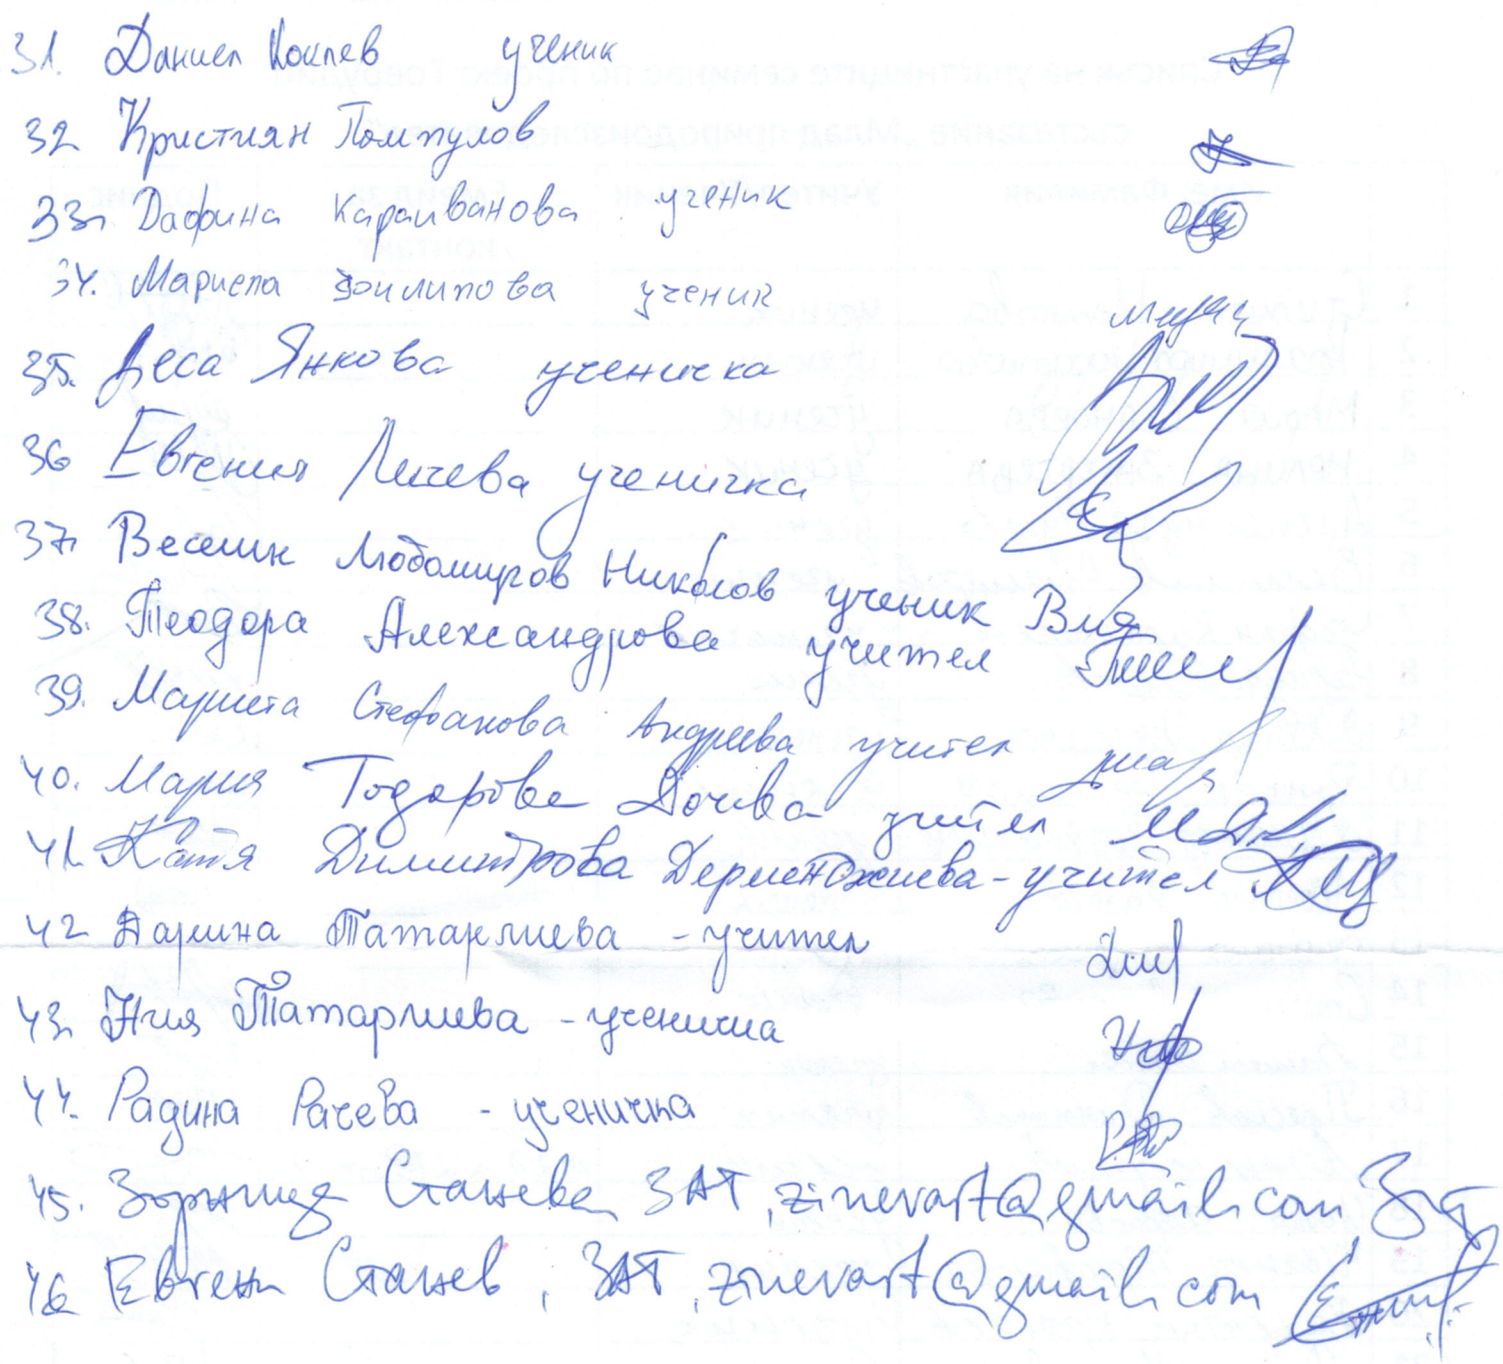 31. Даниел ученик
32 Кристиян Помпулов
33. Дафина Караиванова ученик
34. Мариела Филипова ученик
35. Деса Янкова ученичка
36 Евгения Личева ученичка
37. Веселин Любомиров Николов ученик
38. Теодора Александрова учител
39. Мариета Стефанова Андреева учител
40. Мария Тодорова Дочева учител
41. Катя Димитрова Дерменджиева - учител
42 Дарина Татарлиева - учител
43. Ния Татарлиева - ученичка
44. Радина Рачева - ученичка
45. Зорница Станева ЗАТ, zinevart@gmail.com
46 Евгени Станев, ЗАТ, zinevart@gmail.com